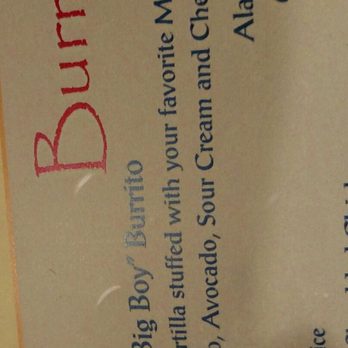 Burr
Big Boy" Burrito
rtilla stuffed with your favorite M
o, Avocado, Sour Cream and Che
Ala
ice